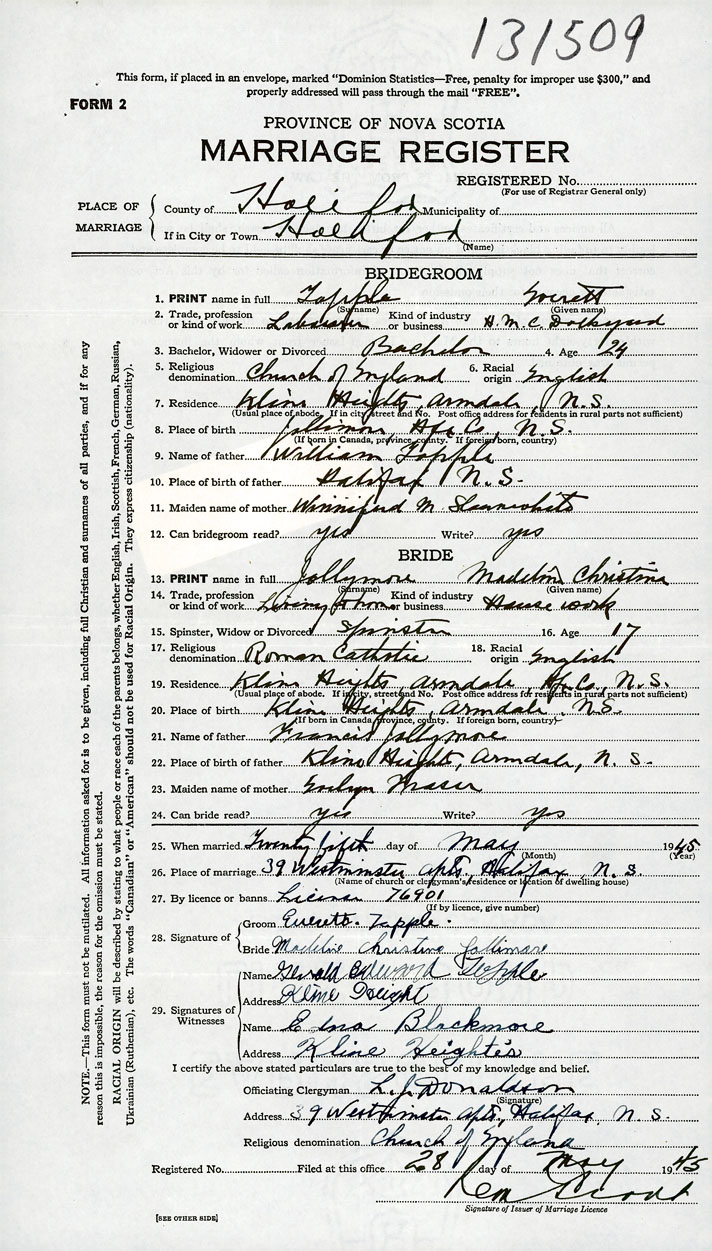 131509
This form, if placed in an envelope, marked "Dominion Statistics—Free, penalty for improper use $300," and
properly addressed will pass through the mail "FREE".
FORM 2
PROVINCE OF NOVA SCOTIA
MARRIAGE REGISTER
REGISTERED No.
(For use of Registrar General only)
PLACE OF MARRIAGE
County of Halifax Municipality of
If in City or Town Halifax
(Name)
BRIDEGROOM
1. PRINT name in full Topple Everett
(Surname) (Given name)
2. Trade, profession or kind of work Labourer Kind of industry or business H.M.C. Dockyard
3. Bachelor, Widower or Divorced Bachelor 4. Age 24
5. Religious denomination Church of England 6. Racial origin English
7. Residence Kline Heights, Armdale, N.S.
(Usual place of abode. If in city, street and No. Post office address for residents in rural parts not sufficient)
8. Place of birth Jollimore, Hfx. Co., N.S.
(If born in Canada, province, county. If foreign born, country)
9. Name of father William Topple
10. Place of birth of father Halifax N.S.
11. Maiden name of mother Winnifred M.
12. Can bridegroom read? yes Write? yes
BRIDE
13. PRINT name in full Jollymore Madeline Christina
(Surname) (Given name)
14. Trade, profession or kind of work Living at home Kind of industry or business House work
15. Spinster, Widow or Divorced Spinster 16. Age 17
17. Religious denomination Roman Catholic 18. Racial origin English
19. Residence Kline Heights, Armdale, Hfx. Co., N.S.
(Usual place of abode. If in city, street and No. Post office address for residents in rural parts not sufficient)
20. Place of birth Kline Heights, Armdale, N.S.
(If born in Canada, province, county. If foreign born, country)
21. Name of father Francis Jollymore
22. Place of birth of father Kline Heights, Armdale, N.S.
23. Maiden name of mother Evelyn Fraser
24. Can bride read? yes Write? yes
25. When married Twenty fifth day of May 1945
(Month) (Year)
26. Place of marriage 39 Westminster Apts, Halifax, N.S.
(Name of church or clergyman's residence or location of dwelling house)
27. By licence or banns License 76901
(If by licence, give number)
28. Signature of
Groom Everett. Topple.
Bride Madeline Christina Jollimore
29. Signatures of Witnesses
Name Gerald Edward Topple
Address Kline Height
Name Edna Blackmore
Address Kline Heights
I certify the above stated particulars are true to the best of my knowledge and belief.
Officiating Clergyman L. J. Donaldson
(Signature)
Address 39 Westminster Apts, Halifax, N.S.
Religious denomination Church of England
Registered No. Filed at this office 28 day of May 1945
Signature of Issuer of Marriage Licence
[SEE OTHER SIDE]
NOTE.—This form must not be mutilated. All information asked for is to be given, including full Christian and surnames of all parties, and if for any
reason this is impossible, the reason for the omission must be stated.
RACIAL ORIGIN will be described by stating to what people or race each of the parents belongs, whether English, Irish, Scottish, French, German, Russian,
Ukrainian (Ruthenian), etc. The words "Canadian" or "American" should not be used for Racial Origin. They express citizenship (nationality).